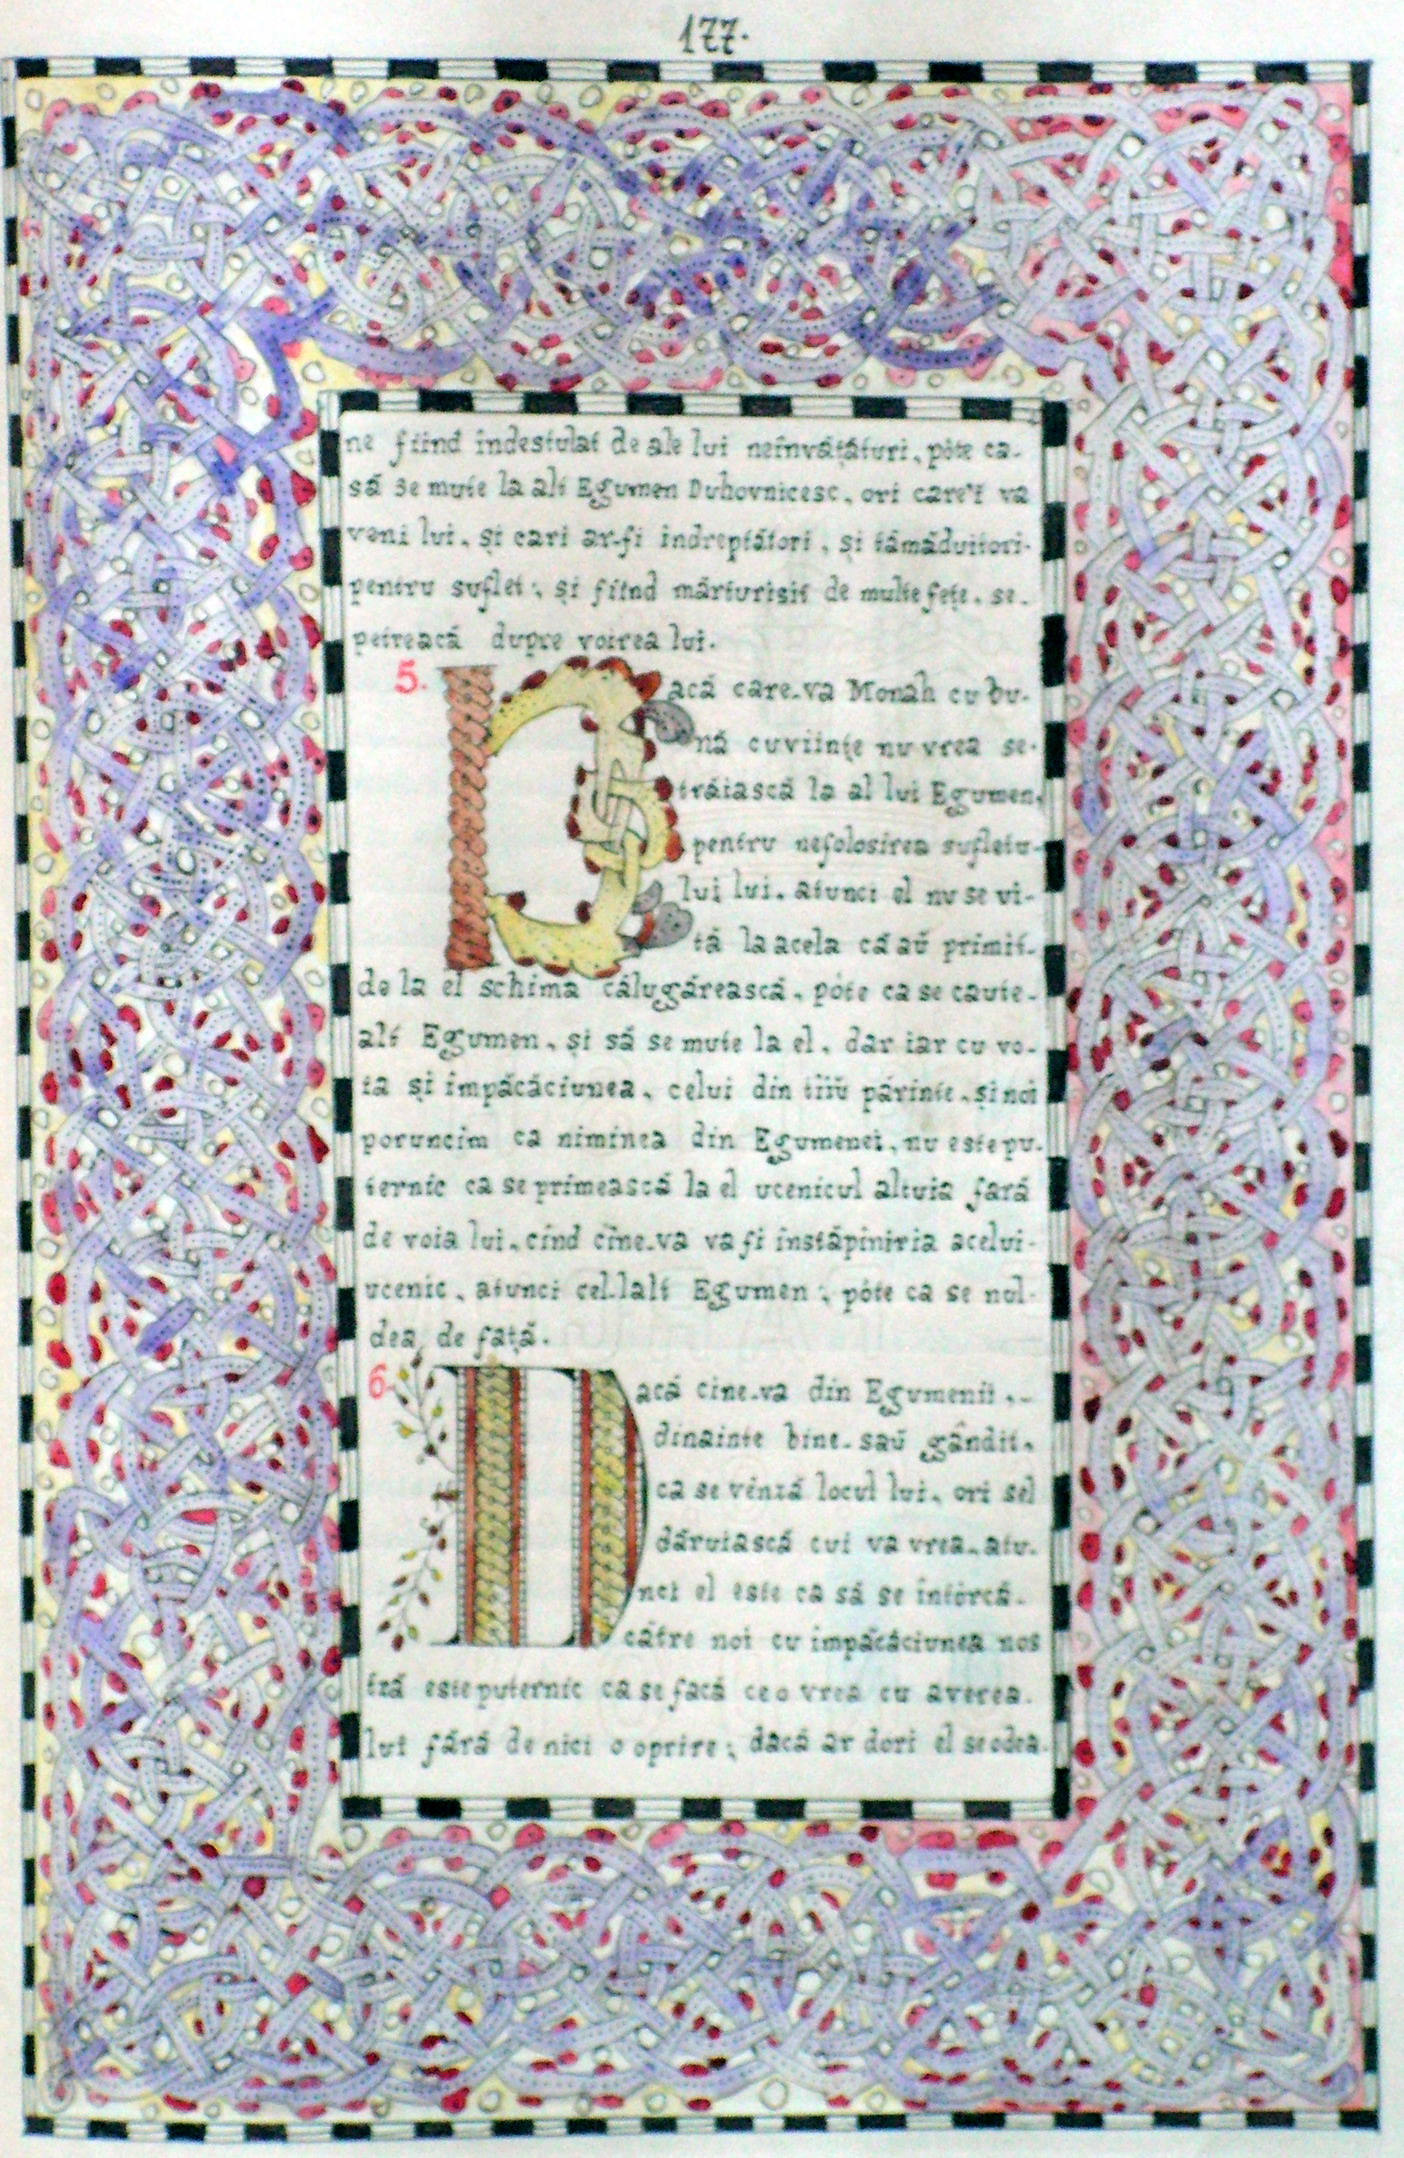 177.
ne fiind îndestulat de ale lui neînvățături, póte ca-
să se mute la alt Egumen Duhovnicesc, ori care'ĭ va
veni lui, și cari ar-fi indreptători, și tămăduitori-
pentru suflet; și fiind mărturisit de multe fețe, se-
petreacă dupre voirea lui.
5. Dacă care-va Monah cu bu-
nă cuviințe nu vrea se-
trăiască la al lui Egumen,
pentru nefolosirea sufletu-
lui lui, atunci el nu se vi-
tă la acela că aŭ primit-
de la el schima călugărească, póte ca se caute-
alt Egumen, și să se mute la el, dar iar cu vo-
ta și împăcăciunea, celui din tiiŭ părinte, și noi
poruncim ca niminea din Egumenei, nu este pu-
ternic ca se primească la el ucenicul altuia fară
de voia lui, cînd cine-va va fi instăpiniria acelui-
ucenic, atunci cel-lalt Egumen; póte ca se nul-
dea de față.
6. Dacă cine-va din Egumenii,-
dinainte bine-saŭ gândit,
ca se vênză locul lui, ori sel
dăruiască cui va vrea, atu-
nci el este ca să se intórcă-
către noi cu împăcăciunea nos
tră este puternic ca se facă ce o vrea cu averea-
lui fără de nici o oprire; dacă ar dori el se odea-